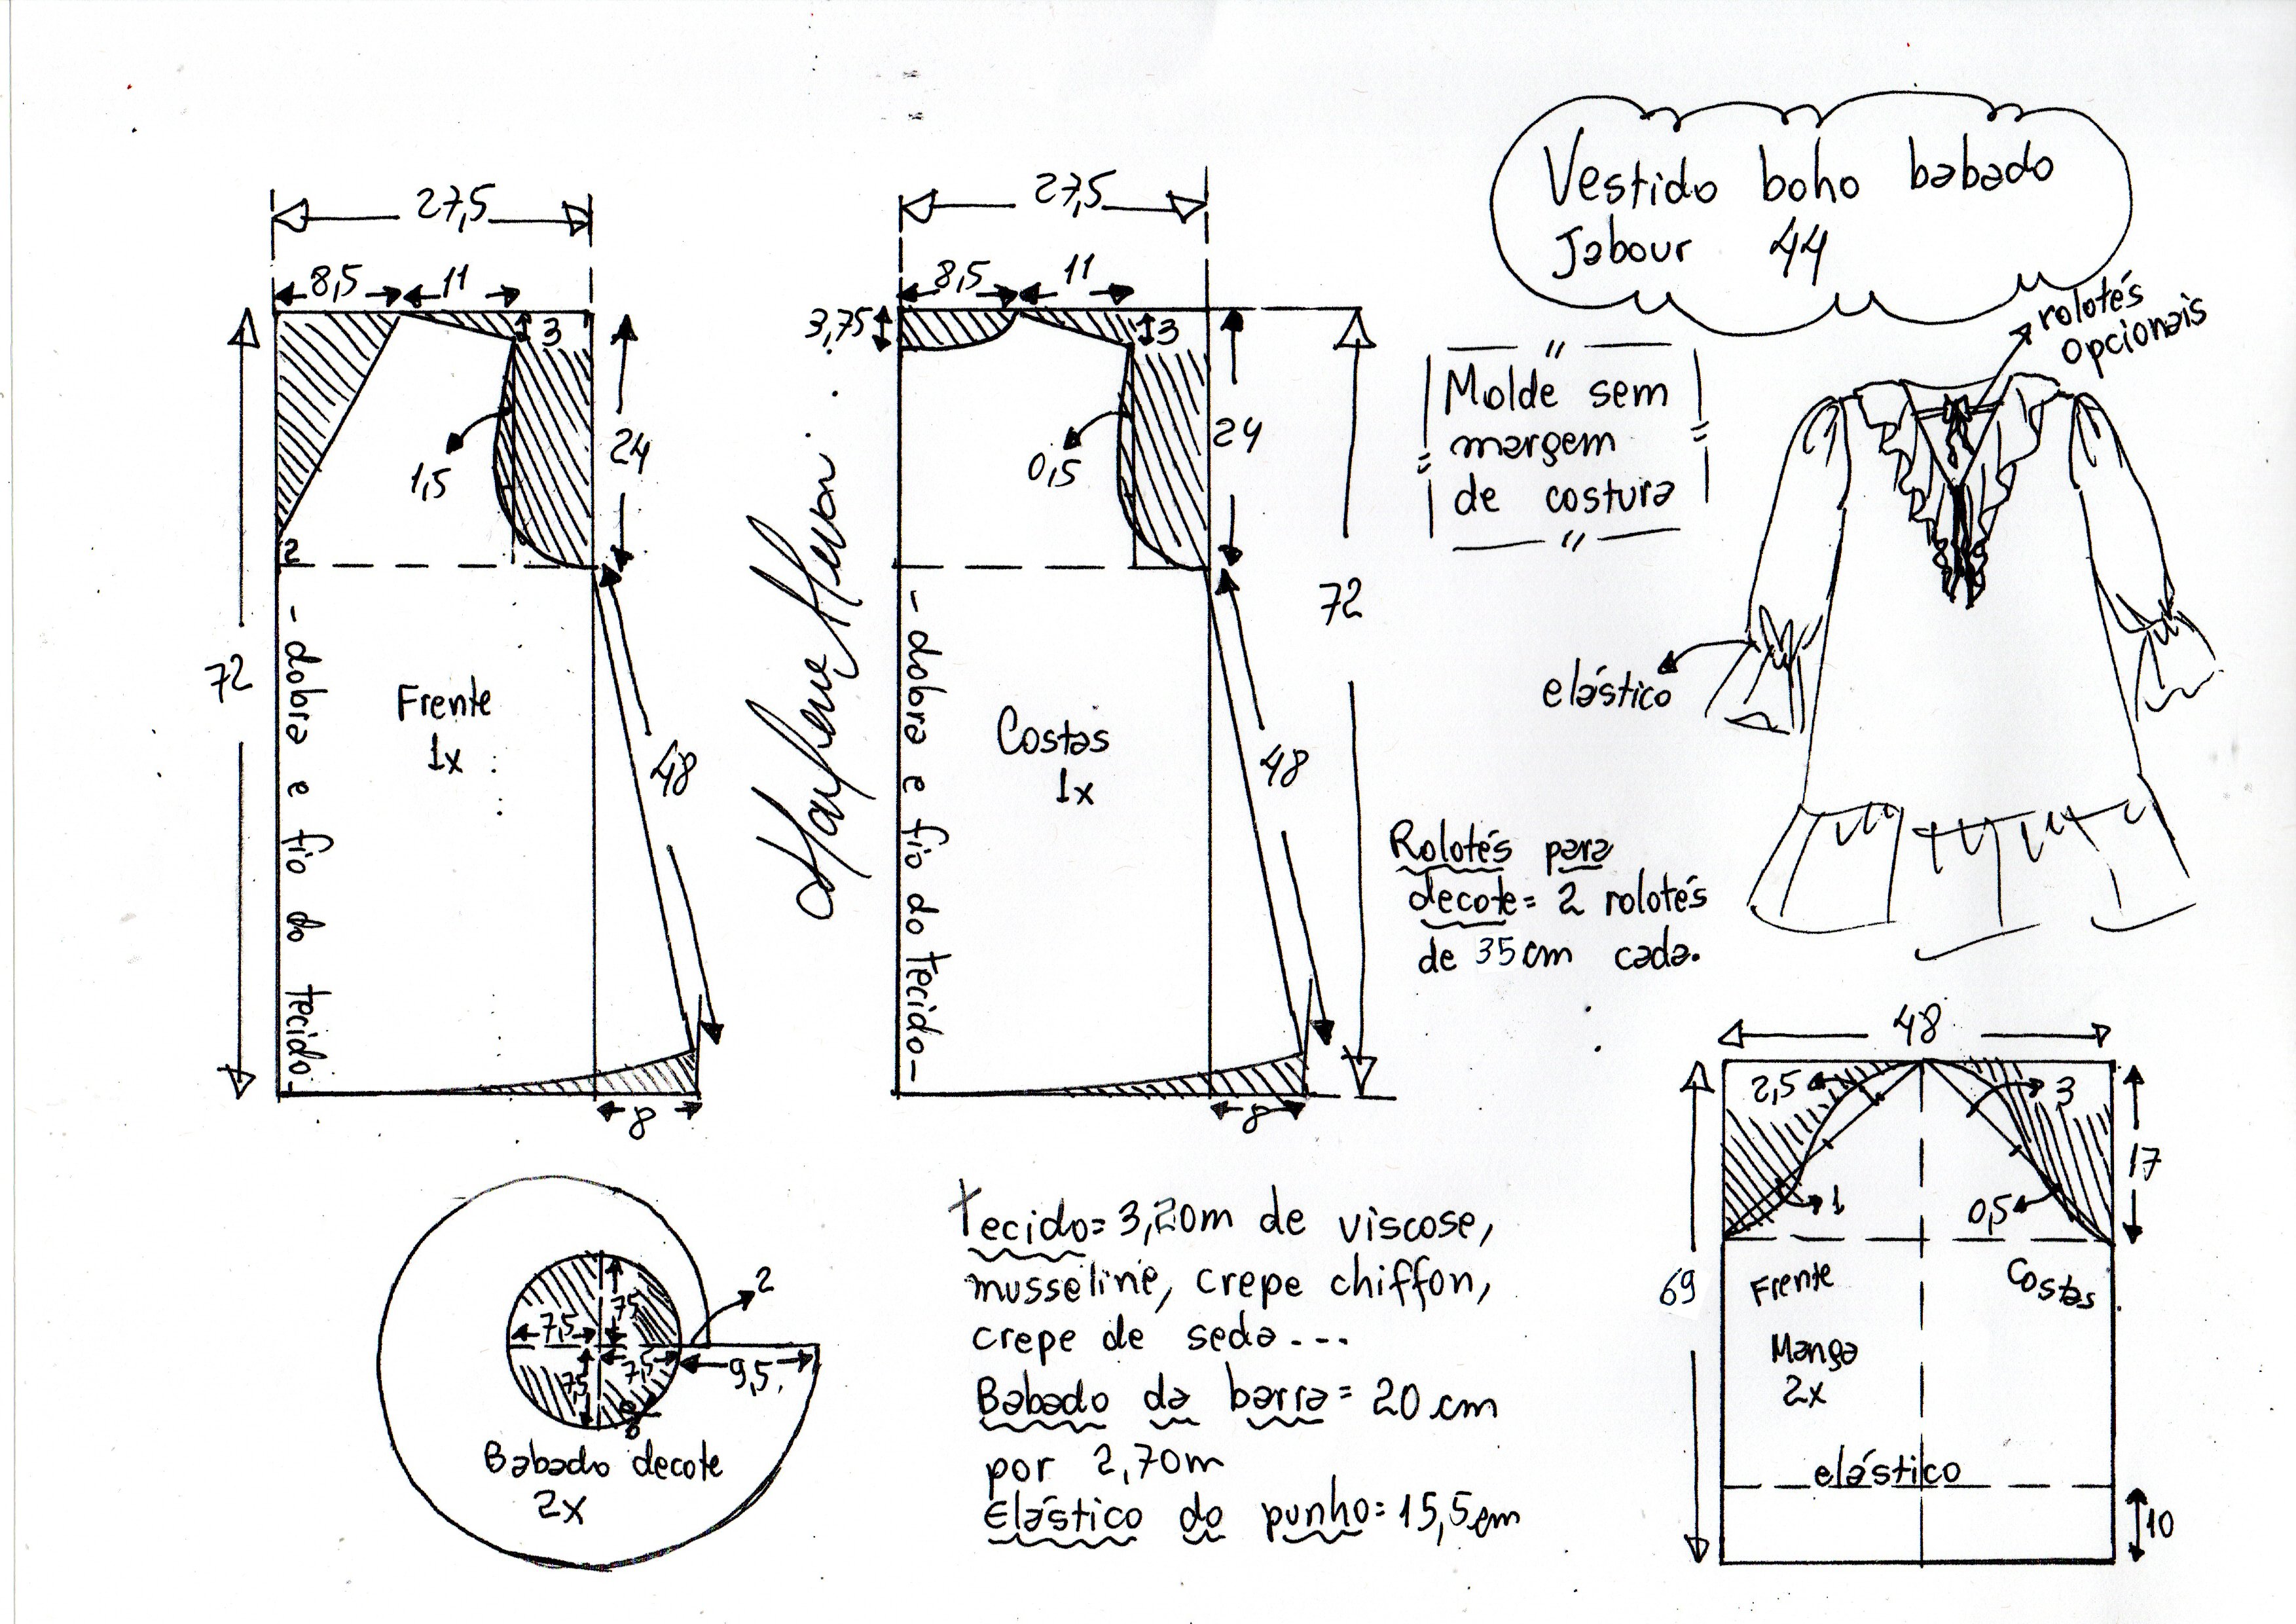 Vestido boho babado
Jabour 44
rolotés
opcionais
Molde sem
margem
de costura
elástico
Rolotés para
decote= 2 rolotés
de 35cm cada.
27,5
8,5
11
3
1,5
24
2
72
48
8
Frente
1x
- dobra e fio do tecido-
Marlene Mukai
27,5
8,5
11
3,75
3
0,5
24
72
48
8
Costas
1x
- dobra e fio do tecido-
7,5
7,5
7,5
7,5
2
9,5
Babado decote
2x
Tecido= 3,20m de viscose,
musseline, crepe chiffon,
crepe de seda...
Babado da barra= 20 cm
por 2,70m
Elástico do punho= 15,5cm
48
2,5
3
17
1
0,5
69
Frente
Costas
Manga
2x
elástico
10